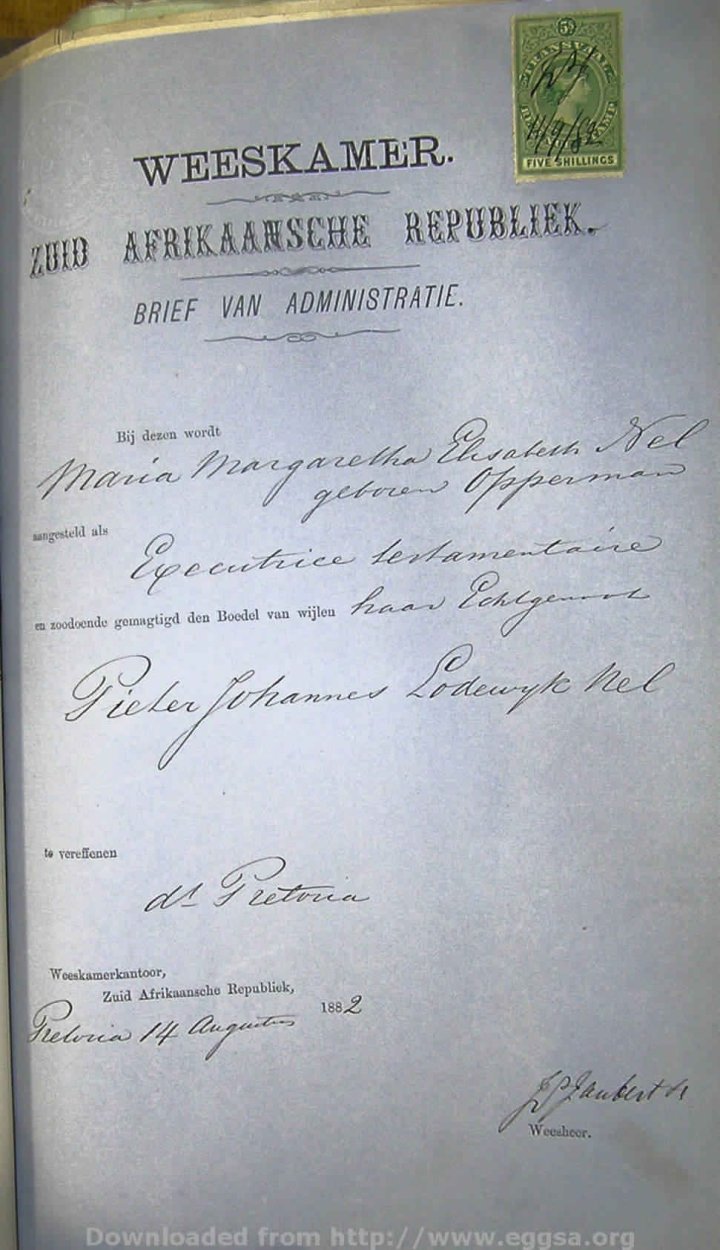 5s
TRANSVAAL
11/9/82
FIVE SHILLINGS
WEESKAMER.
ZUID AFRIKAANSCHE REPUBLIEK.
BRIEF VAN ADMINISTRATIE.
Bij dezen wordt
Maria Margaretha Elisabeth Nel
geboren Opperman
aangesteld als
Executrice testamentaire
en zoodoende gemagtigd den Boedel van wijlen haar Echtgenoot
Pieter Johannes Lodewyk Nel
te vereffenen
dt Pretoria
Weeskamerkantoor,
Zuid Afrikaansche Republiek,
Pretoria 14 Augustus 1882
Joubert
Weesheer.
Downloaded from http://www.eggsa.org